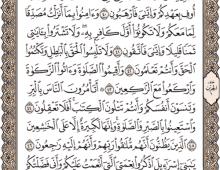 أُوفِ بِعَهْدِكُمْ وَإِيَّٰىَ فَٱرْهَبُونِ ٤٠ وَءَامِنُوا۟ بِمَآ أَنزَلْتُ مُصَدِّقًا
لِّمَا مَعَكُمْ وَلَا تَكُونُوٓا۟ أَوَّلَ كَافِرٍۭ بِهِۦ ۖ وَلَا تَشْتَرُوا۟ بِـَٔايَٰتِى
ثَمَنًا قَلِيلًا وَإِيَّٰىَ فَٱتَّقُونِ ٤١ وَلَا تَلْبِسُوا۟ ٱلْحَقَّ بِٱلْبَٰطِلِ وَتَكْتُمُوا۟
ٱلْحَقَّ وَأَنتُمْ تَعْلَمُونَ ٤٢ وَأَقِيمُوا۟ ٱلصَّلَوٰةَ وَءَاتُوا۟ ٱلزَّكَوٰةَ
وَٱرْكَعُوا۟ مَعَ ٱلرَّٰكِعِينَ ٤٣ ۞ أَتَأْمُرُونَ ٱلنَّاسَ بِٱلْبِرِّ
وَتَنسَوْنَ أَنفُسَكُمْ وَأَنتُمْ تَتْلُونَ ٱلْكِتَٰبَ ۚ أَفَلَا تَعْقِلُونَ ٤٤
وَٱسْتَعِينُوا۟ بِٱلصَّبْرِ وَٱلصَّلَوٰةِ ۚ وَإِنَّهَا لَكَبِيرَةٌ إِلَّا عَلَى ٱلْخَٰشِعِينَ
٤٥ ٱلَّذِينَ يَظُنُّونَ أَنَّهُم مُّلَٰقُوا۟ رَبِّهِمْ وَأَنَّهُمْ إِلَيْهِ رَٰجِعُونَ ٤٦
يَٰبَنِىٓ إِسْرَٰٓءِيلَ ٱذْكُرُوا۟ نِعْمَتِىَ ٱلَّتِىٓ أَنْعَمْتُ عَلَيْكُمْ وَأَنِّى فَضَّلْتُكُمْ